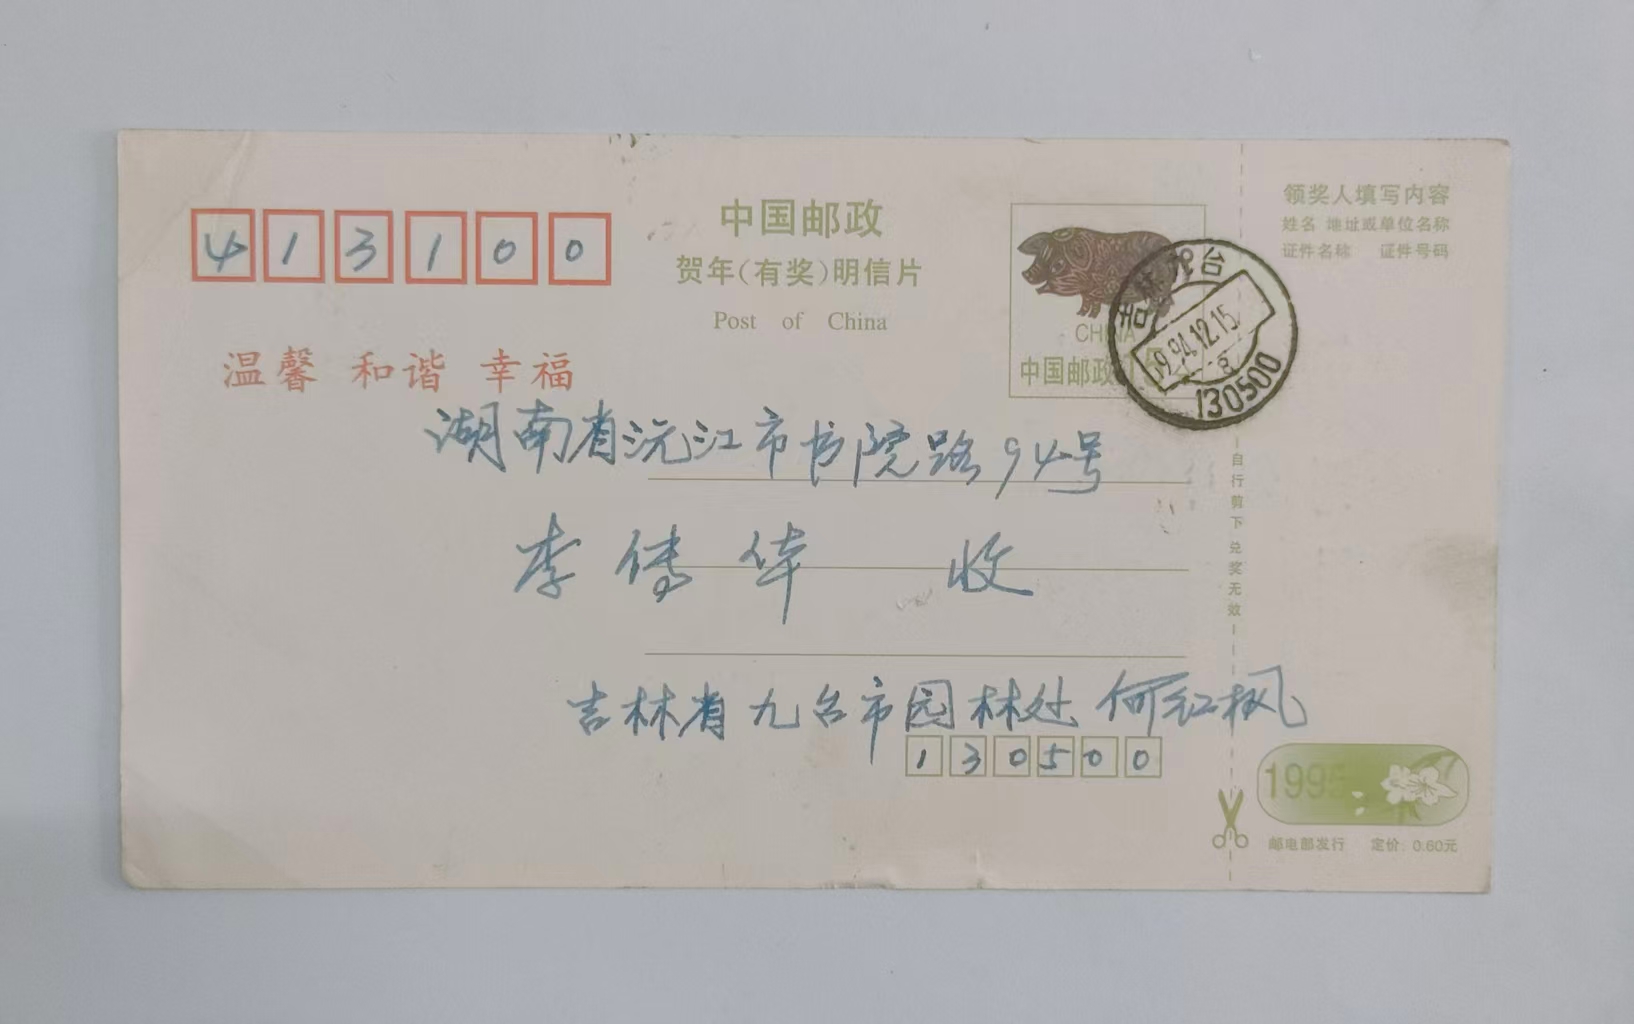 413100
中国邮政
贺年(有奖)明信片
Post of China
温馨 和谐 幸福
CHINA
中国邮政
吉林九台
94.12.15
130500
领奖人填写内容
姓名 地址或单位名称
证件名称 证件号码
湖南省沅江市书院路94号
李传华 收
吉林省九台市园林处 何红枫
130500
自行剪下兑奖无效
1995
邮电部发行 定价: 0.60元